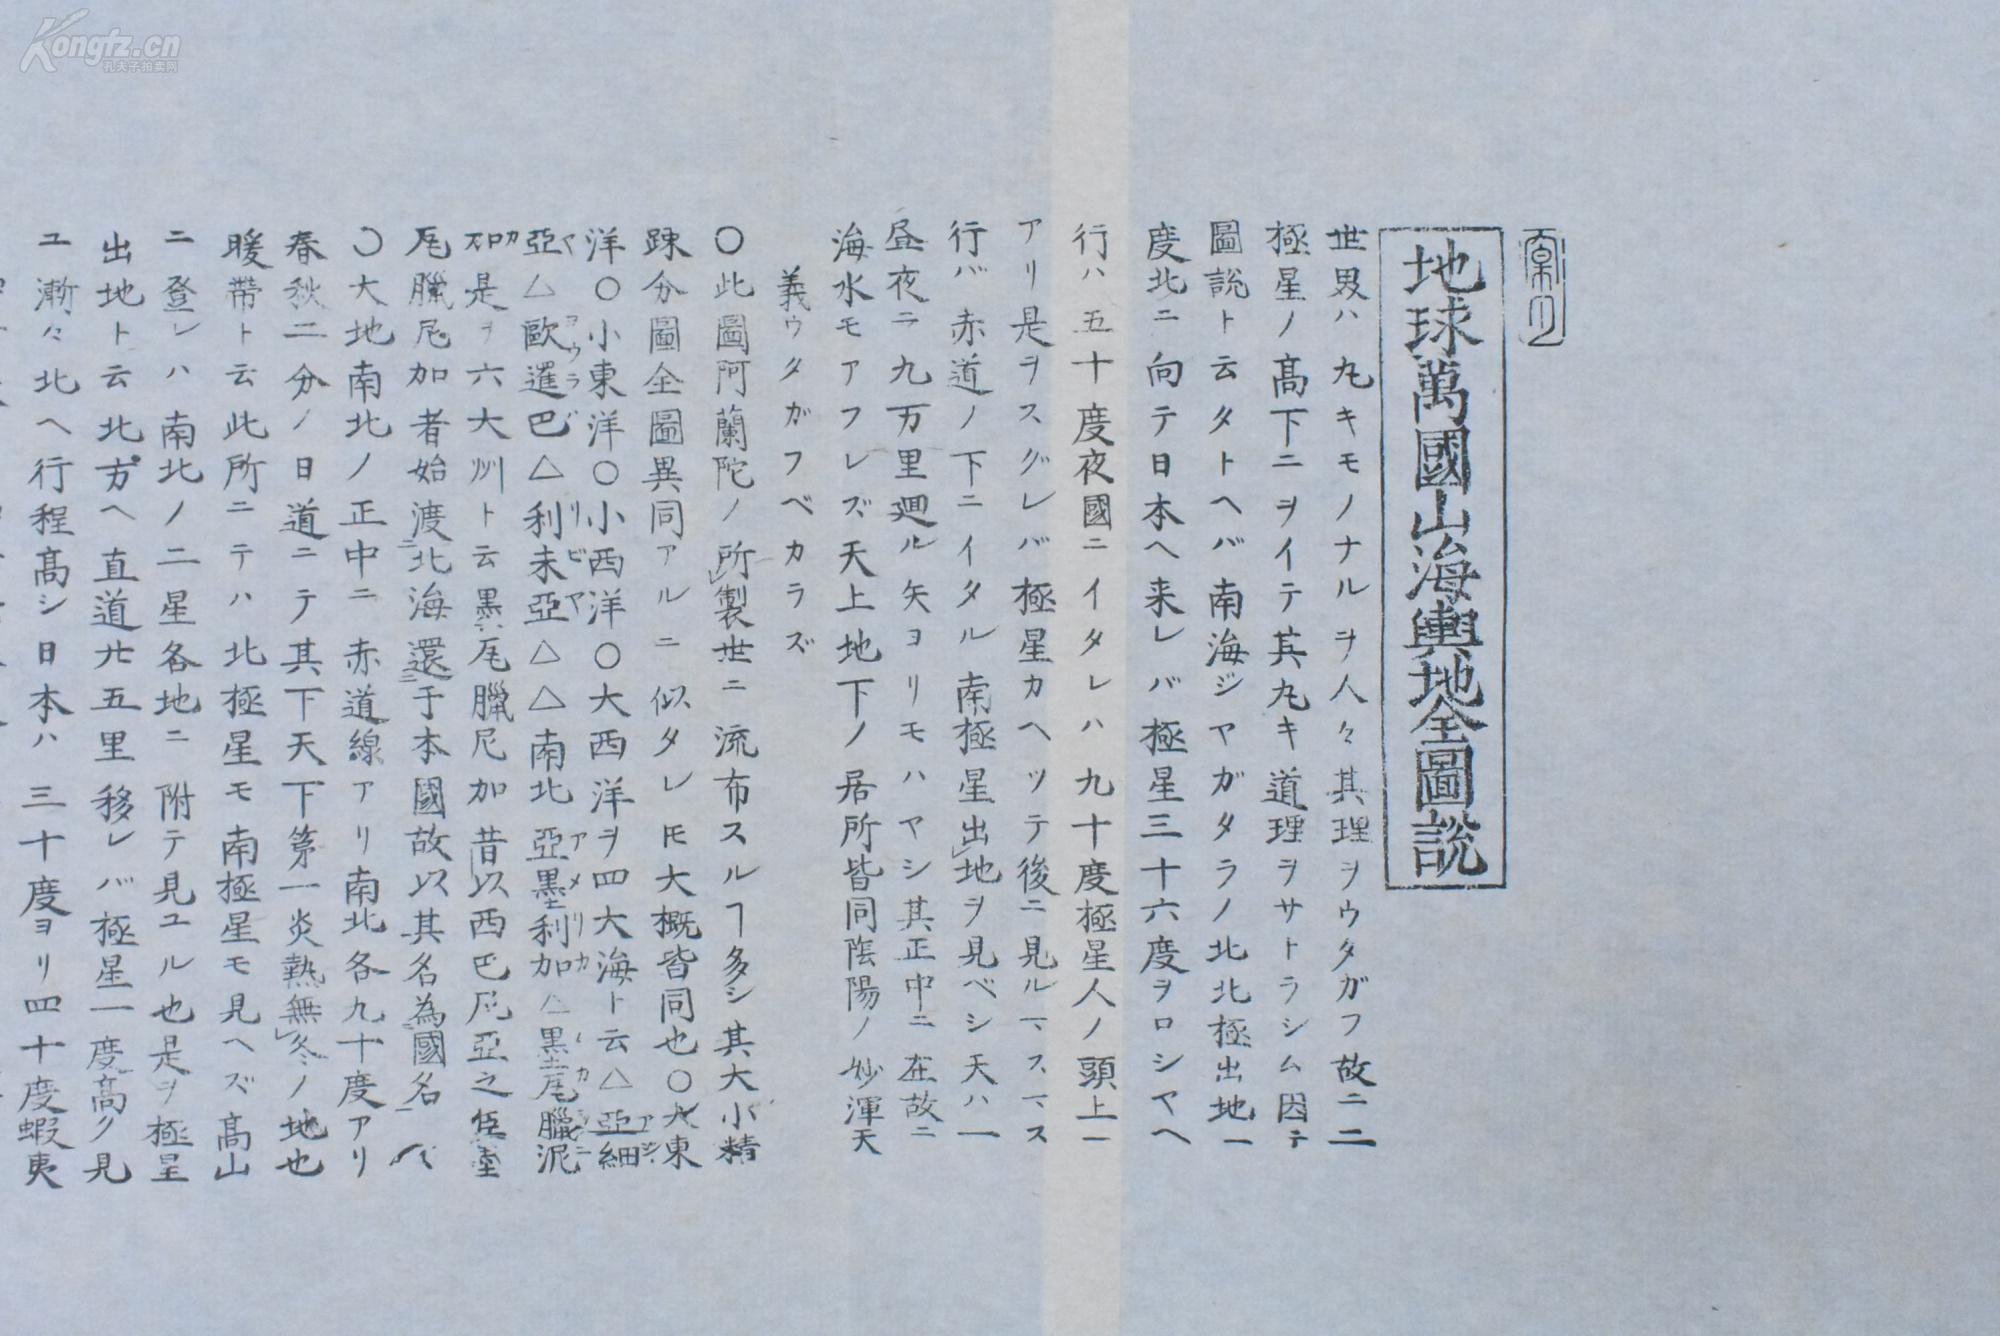 地球萬國山海輿地全圖説
世界ハ丸キモノナルヲ人々其理ヲウタガフ故ニ二
極星ノ髙下ニヲイテ其丸キ道理ヲサトラシム因テ
圖説ト云タトヘバ南海ジヤガタラノ北北極出地一
度北ニ向テ日本ヘ来レバ極星三十六度ヲロシヤヘ
行ハ五十度夜國ニイタレハ九十度極星人ノ頭上一
アリ是ヲスグレバ極星カヘツテ後ニ見ルーマスマス
行バ赤道ノ下ニイタル南極星出地ヲ見ベシ天ハ一
昼夜ニ九万里廻ル矢ヨリモハヤシ其正中ニ在故ニ
海水モアフレズ天上地下ノ居所皆同陰陽ノ妙渾天
義ウタガフベカラズ
〇此圖阿蘭陀ノ所製世ニ流布スルヿ多シ其大小精
踈分圖全圖異同アルニ似タレ𪜈大概皆同也〇大東
洋〇小東洋〇小西洋〇大西洋ヲ四大海ト云△亞細
亞△歐暹巴△利未亞△△南北亞墨利加△墨尾臘泥
加是ヲ六大州ト云墨尾臘尼加昔以西巴尼亞之臣
尾臘尼加者始渡北海還于本國故以其名為國名
〇大地南北ノ正中ニ赤道線アリ南北各九十度アリ
春秋二分ノ日道ニテ其下天下第一炎熱無冬ノ地也
暖帶ト云此所ニテハ北極星モ南極星モ見ヘズ髙山
ニ登レハ南北ノ二星各地ニ附テ見ユル也是ヲ極星
出地ト云北方ヘ直道廿五里移レバ極星一度髙ク見
ユ漸々北ヘ行程髙シ日本ハ三十度ヨリ四十度蝦夷
Kongfz.cn
孔夫子拍卖网